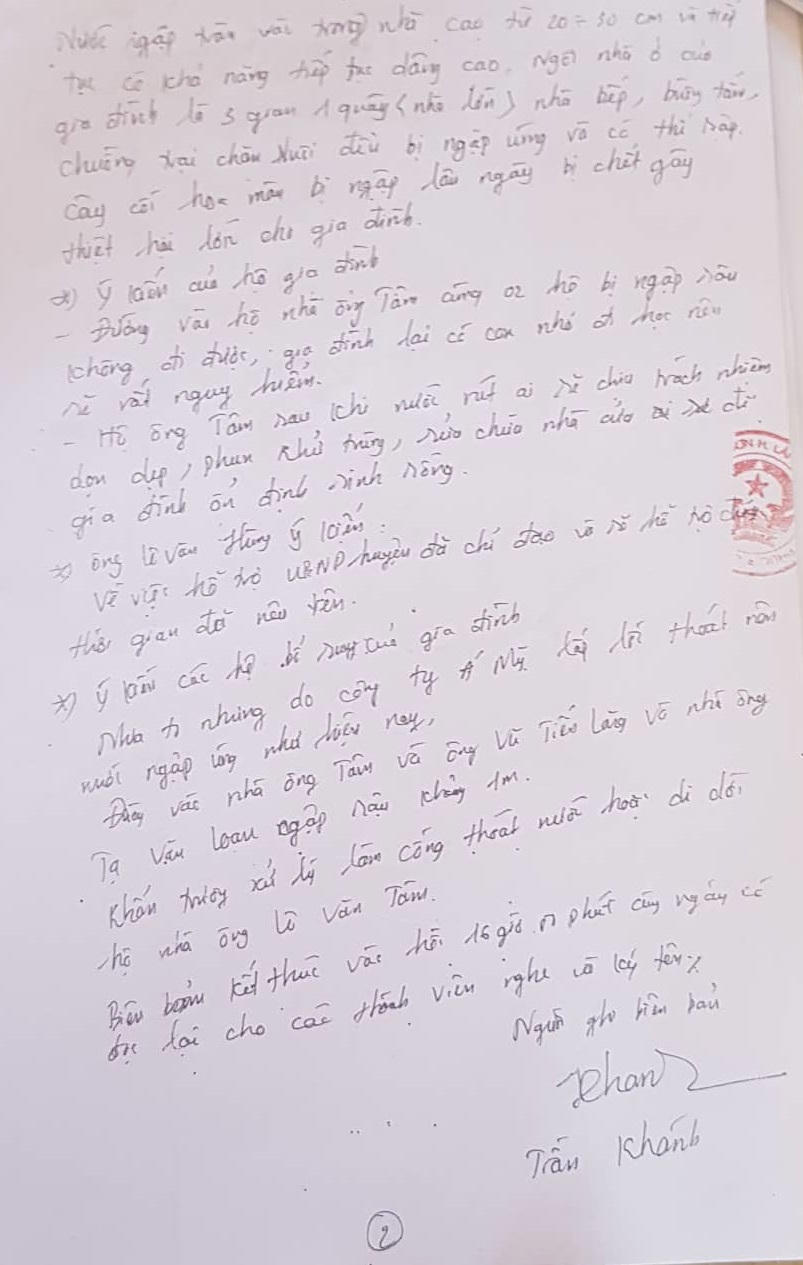 Nước ngập tràn vào trong nhà cao từ 20 ÷ 30 cm và tiếp
tục có khả năng tiếp tục dâng cao. Ngôi nhà ở của
gia đình là 3 gian 1 quầy (nhà lớn) nhà bếp, buồng tắm,
chuồng trại chăn nuôi đều bị ngập úng và có thể sập.
Cây cối hoa màu bị ngập lâu ngày bị chết gây
thiệt hại lớn cho gia đình.
*) Ý kiến của hộ gia đình
- Đường vào hộ nhà ông Tâm cùng 02 hộ bị ngập sâu
không đi được, gia đình lại có con nhỏ đi học nên
sẽ rất nguy hiểm.
- Hộ ông Tâm sau khi nước rút ai sẽ chịu trách nhiệm
dọn dẹp, phun khử trùng, sửa chữa nhà cửa để
gia đình ổn định sinh sống.
*) Ông Lê Văn Hùng ý kiến:
Về việc hỗ trợ UBND huyện đã chỉ đạo và sẽ hỗ trợ
thời gian đã nêu trên.
*) Ý kiến các hộ gia đình
do công ty Á Mỹ lấp lối thoát
nước ngập úng như hiện nay,
Đường vào nhà ông Tâm và ông Vũ Tiến Lãng và nhà ông
Tạ Văn Loan ngập sâu khoảng 1m.
Khẩn trương xử lý làm cống thoát nước hoặc di dời
hộ nhà ông Lê Văn Tâm.
Biên bản kết thúc vào hồi 16 giờ phút cùng ngày có
đọc lại cho các thành viên nghe và ký tên./.
Người ghi biên bản
Khanh
Trần Khánh
2